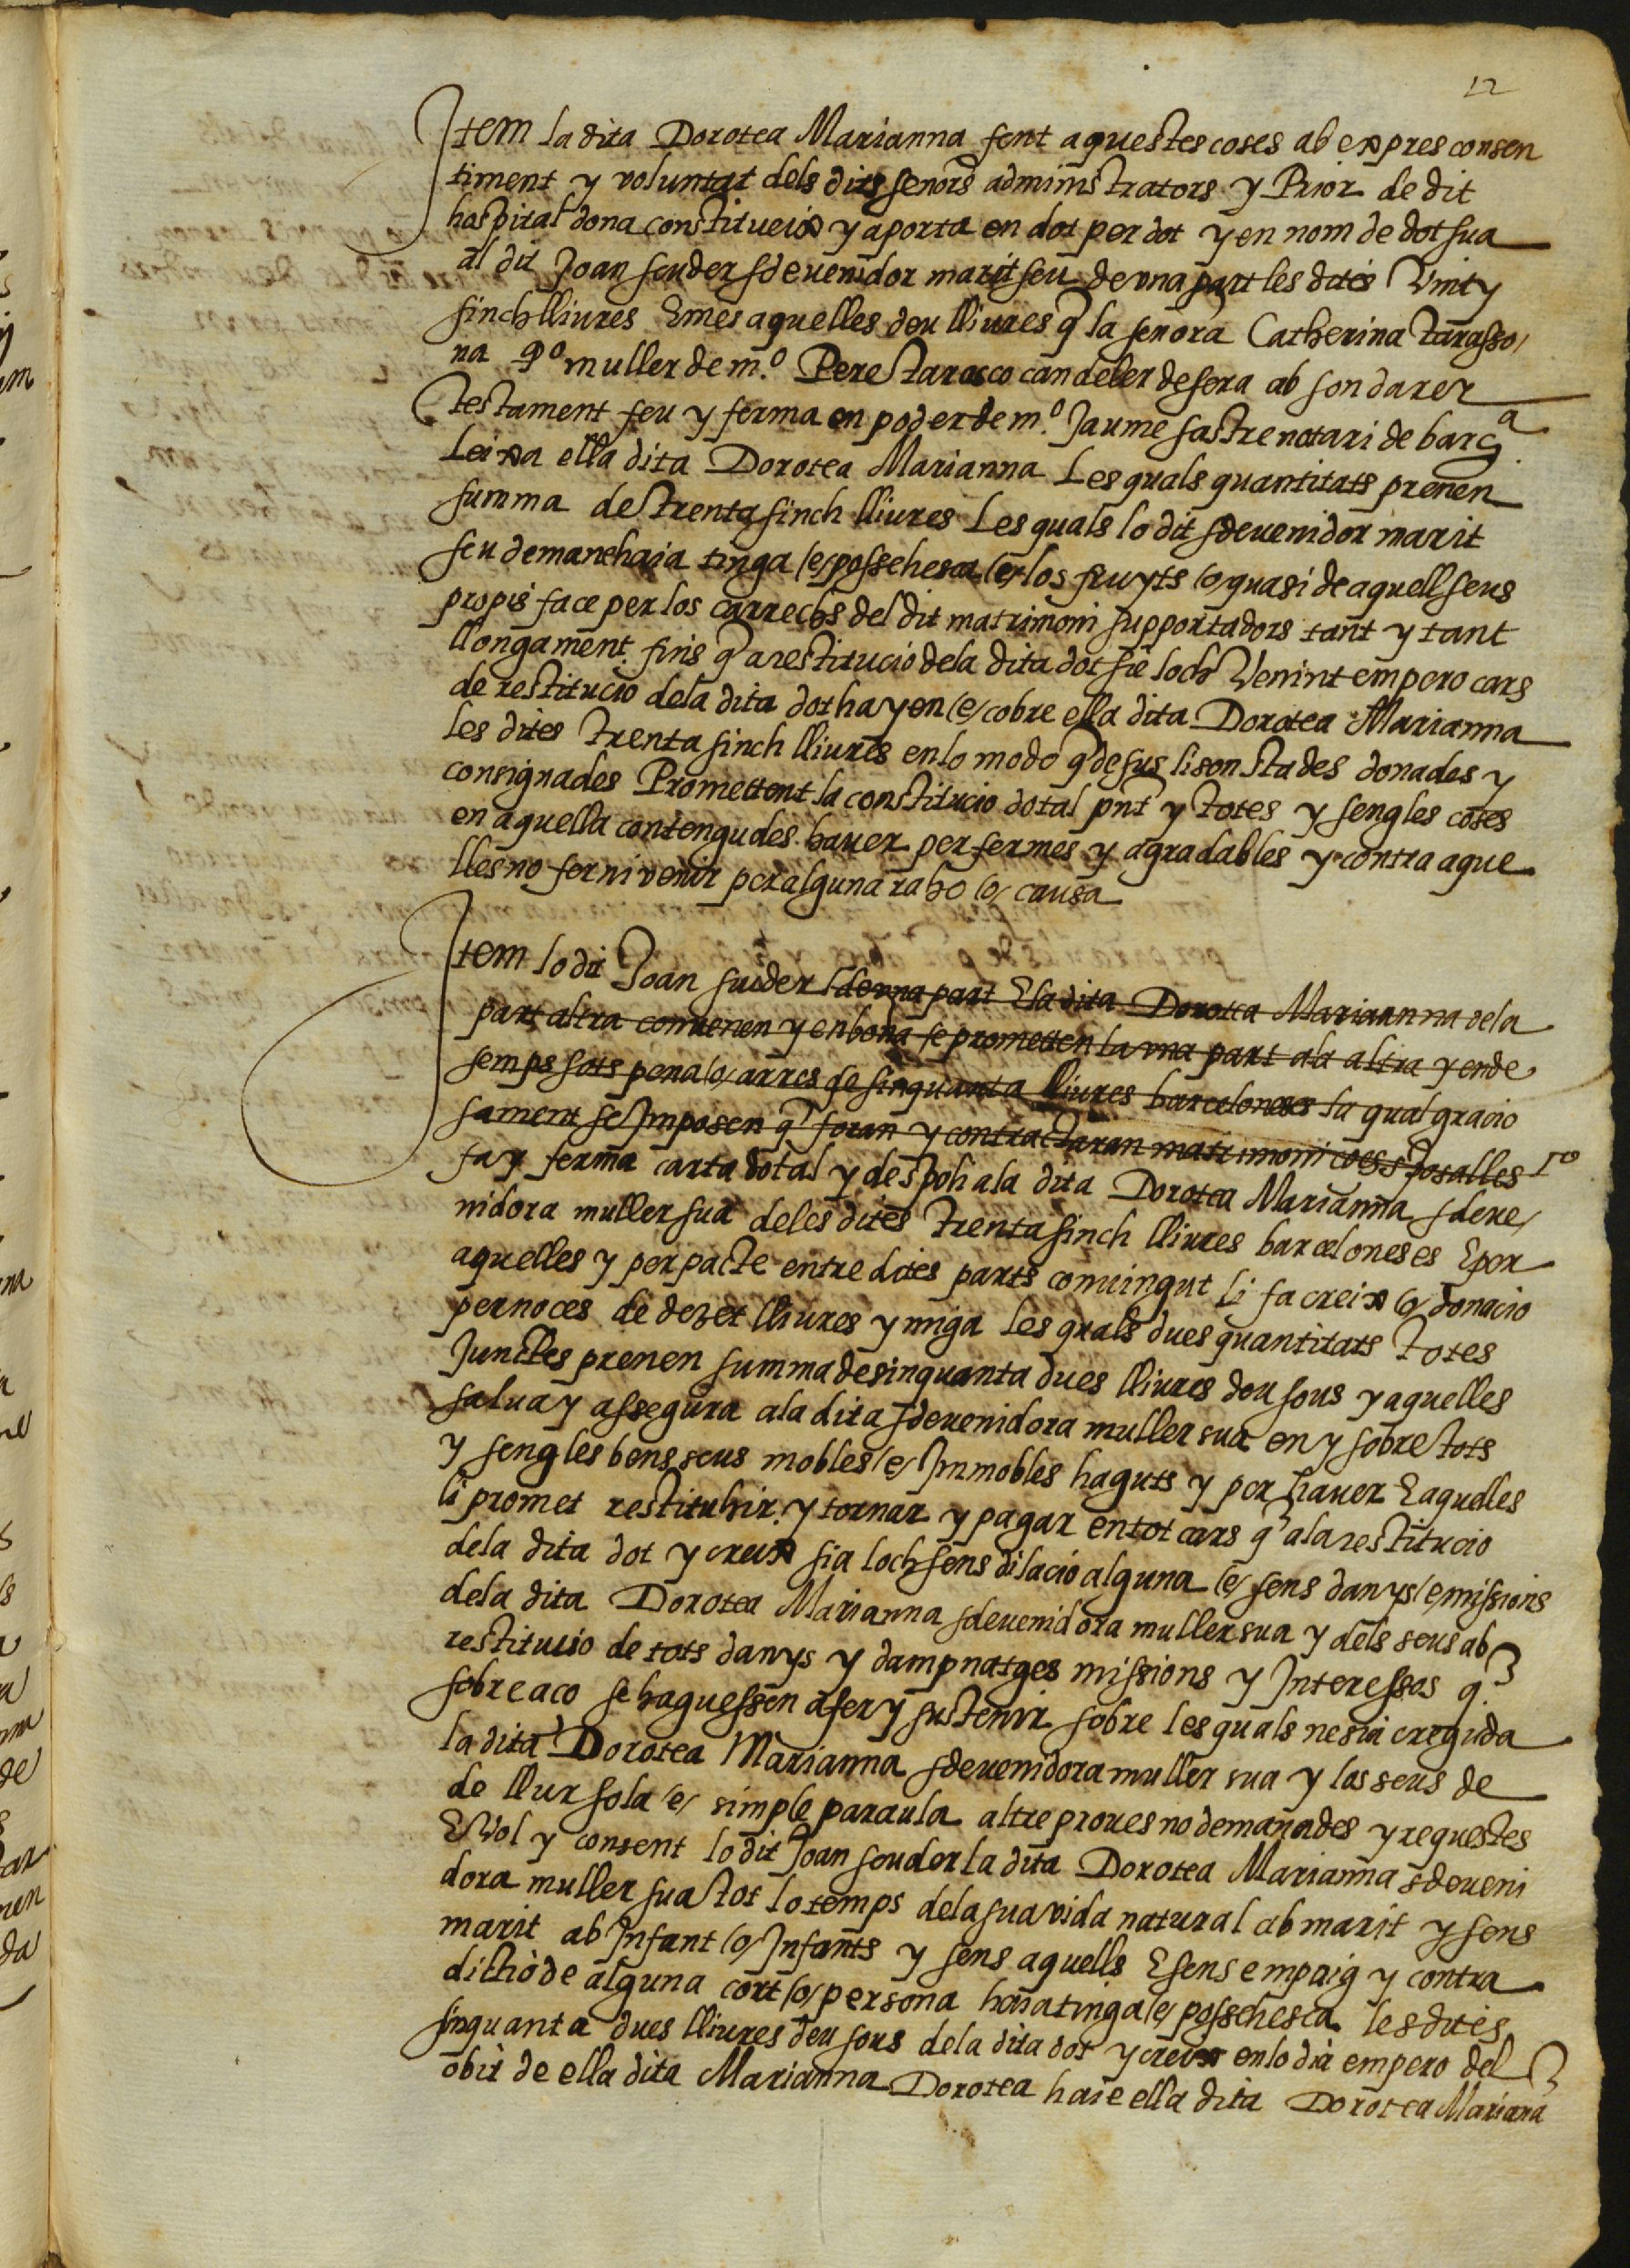 12
Item la dita Dorotea Marianna fent aquestes coses ab expres consen
timent y voluntat dels dits senors administrators y Prior de dit
hospital dona constitueix y aporta en dot per dot y en nom de dot sua
al dit Joan souder sdevenidor marit seu de una part les dites Vint y
sinch lliures E mes aquelles deu lliures q̃ la senora Catherina tarasso
na qº muller de m.º Pere tarasco candeler de sera ab son darer
testament feu y ferma en poder de m.º Jaume sastre notari de barcª
Leixa ella dita Dorotea Marianna Les quals quantitats prenen
summa de trenta sinch lliures Les quals lo dit sdevenidor marit
seu demane haia tinga /e/ possehesca /e/ los fruyts /o/ quasi de aquell seus
propis face per los carrechs del dit matrimoni supportadors tant y tant
llongament fins q̃ a restitucio dela dita dot sie loch Venint empero cars
de restitucio dela dita dot hayen /e/ cobre ella dita Dorotea Marianna
les dites trenta sinch lliures en lo modo q̃ desus li son stades donades y
consignades Promettent la constitucio dotal pnt y totes y sengles coses
en aquella contengudes haver per fermes y agradables y contra aque
lles no fer ni venir per alguna raho /o/ causa
Item lo dit Joan suoder de una part E la dita Dorotea Marianna de la
part altra convenen y en bona fe prometten la una part ala altra y ende
semps sots pena /o/ arres de sinquanta lliures barceloneses la qual gracio
sament se Imposen q̃ foran y contractaran matrimoni coes sposalles rº
fa y ferma carta dotal y de spoli ala dita Dorotea Marianna sdeve
nidora muller sua deles dites trenta sinch lliures barceloneses E per
aquelles y per pacte entre dites parts convingut li fa creix /o/ donacio
per noces de dezet lliures y miga les quals dues quantitats totes
Junctes prenen summa de sinquanta dues lliures deu sous y aquelles
salva y assegura ala dita sdevenidora muller sua en y sobre tots
y sengles bens seus mobles /e/ Immobles haguts y per haver E aquelles
li promet restituhir y tornar y pagar en tot cars q̃ ala restitucio
dela dita dot y creix sia loch sens dilacio alguna /e/ sens danys /e/ missions
dela dita Dorotea Marianna sdevenidora muller sua y dels seus ab
restitucio de tots danys y dampnatges missions y Interessos q̃
sobre aco se haguessen a fer y sustenir sobre les quals ne sia creguda
la dita Dorotea Marianna sdevenidora muller sua y los seus de
de llur sola /e/ simple paraula altre proves no demanades y requestes
E Vol y consent lo dit Joan souder la dita Dorotea Marianna sdeveni
dora muller sua tot lo temps dela sua vida natural ab marit y sens
marit ab Infant /o/ Infants y sens aquells E sens empaig y contra
dictio de alguna cort /o/ persona haia tinga /e/ possehesca les dites
sinquanta dues lliures deu sous dela dita dot y creix en lo dia empero del
obit de ella dita Marianna Dorotea haie ella dita Dorotea Mariana